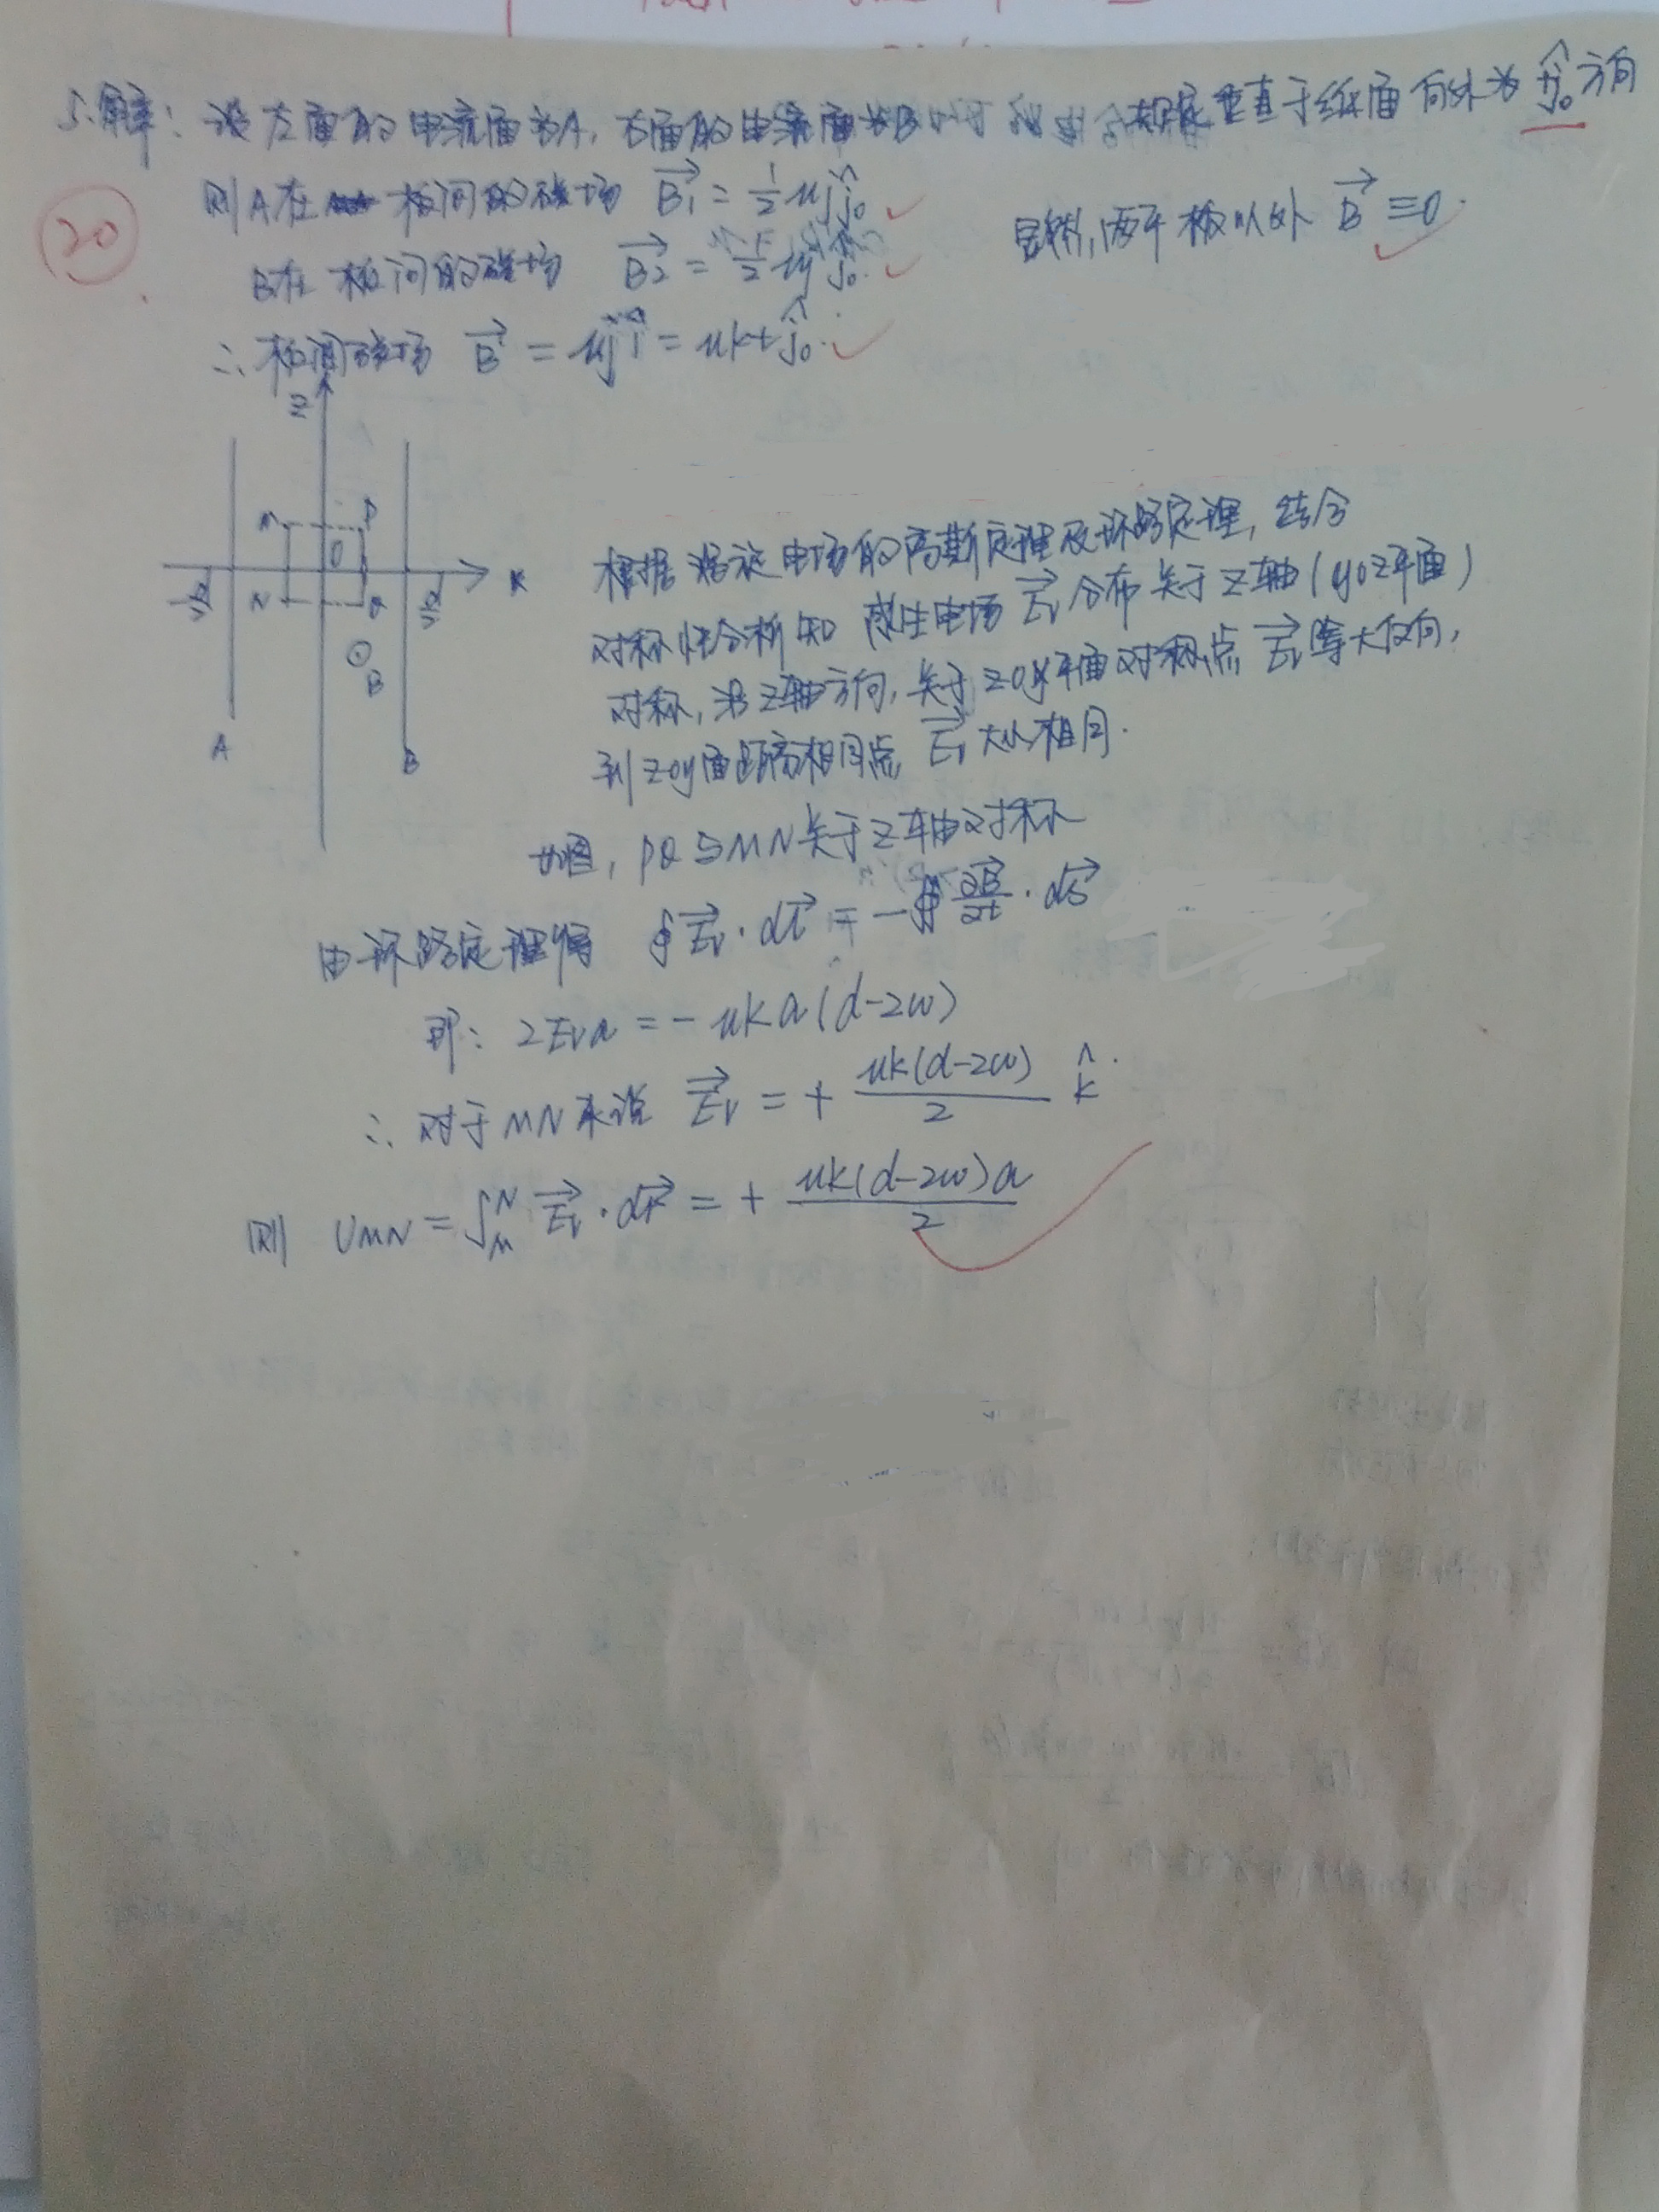 5.解: 设左面的电流面为A, 右面的电流面为B 规定垂直于纸面向外为 ĵ₀方向
20
则A在 板间的磁场 B₁⃗ = ½ μj ĵ₀
显然, 两平板以外 B⃗ ≡ 0.
B在板间的磁场 B₂⃗ = ½ μj ĵ₀.
∴ 板间磁场 B⃗ = μj = μkt ĵ₀.
Z
M P
O
x
-d/2 N Q d/2
⊙
B
A B
根据涡旋电场的高斯定理及环路定理, 结合
对称性分析知 感生电场 Eᵥ⃗ 分布关于Z轴(yoz平面)
对称, 沿Z轴方向, 关于zoy平面对称点 Eᵥ⃗ 等大反向,
到zoy面距离相同点, Eᵥ⃗ 大小相同.
如图, PQ与MN关于Z轴对称
由环路定理得 ∮Eᵥ⃗·dl⃗ = -∯ ∂B⃗/∂t · dS⃗
即: 2Eᵥa = - μka(d-2w)
∴ 对于MN来说 Eᵥ⃗ = + μk(d-2w)/2 k̂.
则 U_MN = ∫_M^N Eᵥ⃗·dr⃗ = + μk(d-2w)a/2